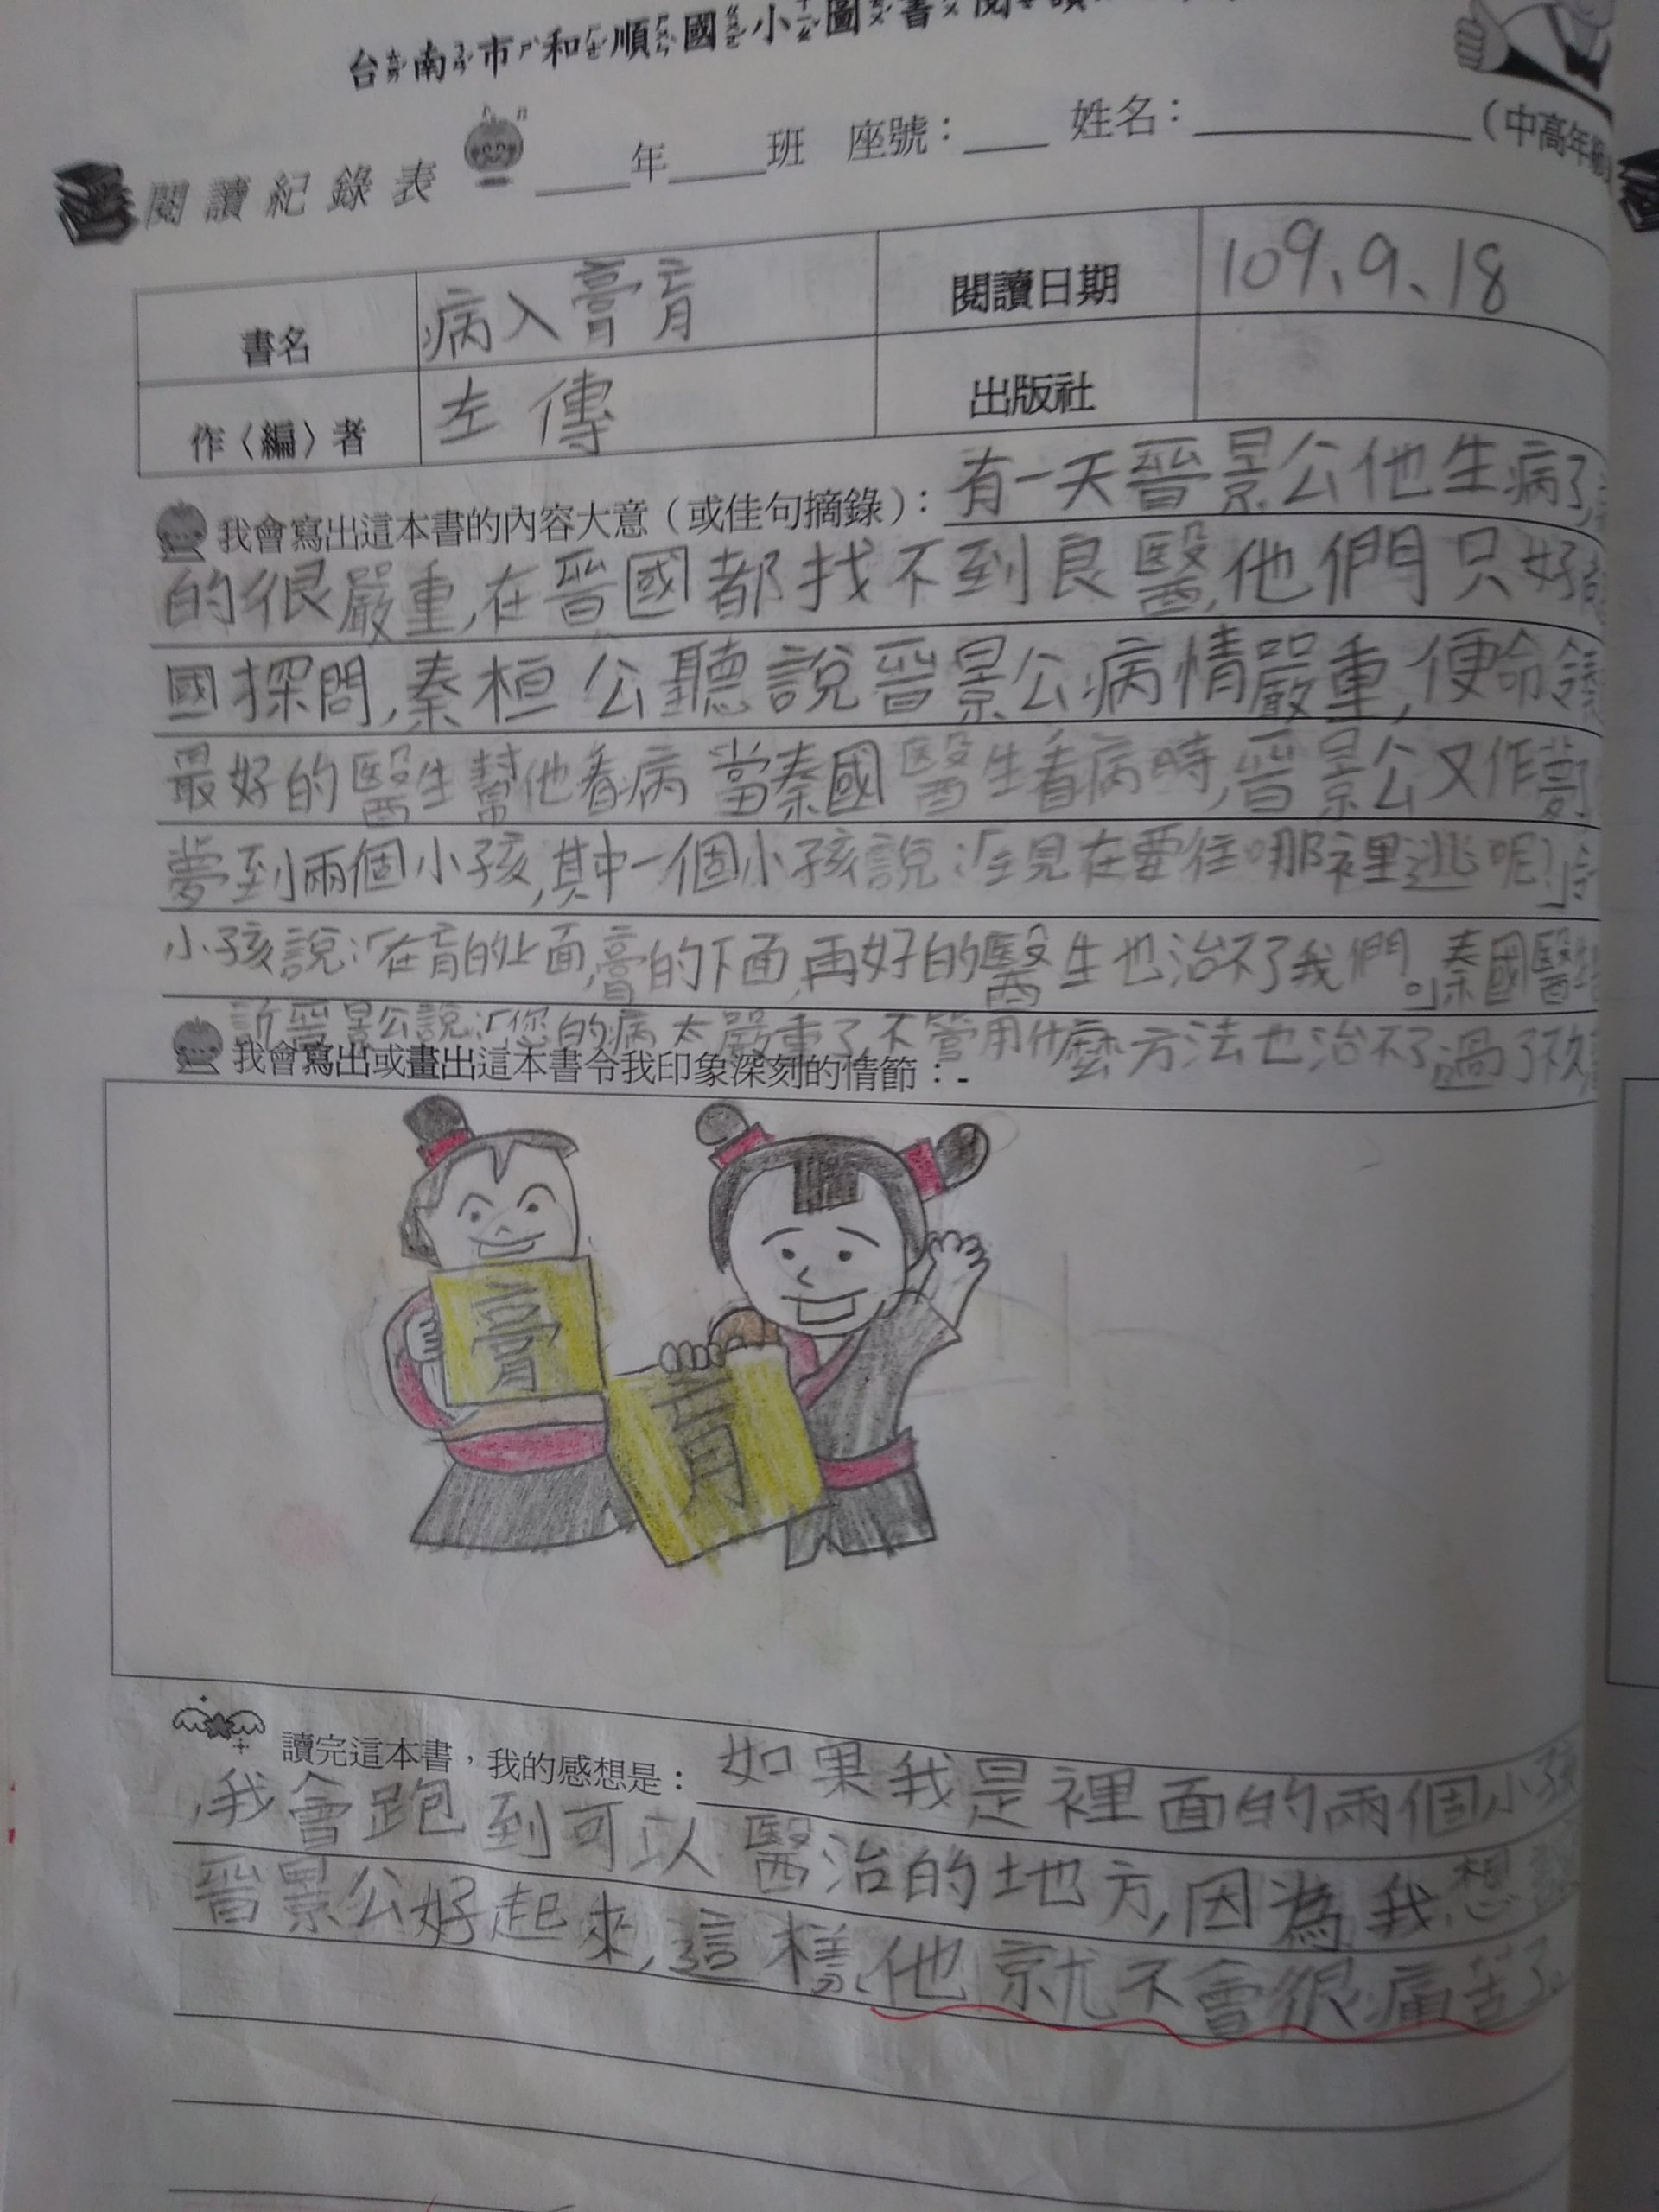 台南市和順國小圖書閱讀
閱讀紀錄表 ____年____班 座號：___ 姓名：__________（中高年級
書名 病入膏肓 閱讀日期 109、9、18
作〈編〉者 左傳 出版社
我會寫出這本書的內容大意（或佳句摘錄）：有一天晉景公他生病了,
的很嚴重,在晉國都找不到良醫,他們只好
國探問,秦桓公聽說晉景公病情嚴重,便命令
最好的醫生幫他看病當秦國醫生看病時,晉景公又作夢
夢到兩個小孩,其中一個小孩說:「現在要往哪裡逃呢?」
小孩說:「在肓的上面,膏的下面,再好的醫生也治不了我們。」秦國醫生
訴晉景公說:「您的病太嚴重了,不管用什麼方法也治不了」過了不久
我會寫出或畫出這本書令我印象深刻的情節：
膏
肓
讀完這本書，我的感想是：如果我是裡面的兩個小孩
,我會跑到可以醫治的地方,因為我想
晉景公好起來,這樣他就不會很痛苦了。